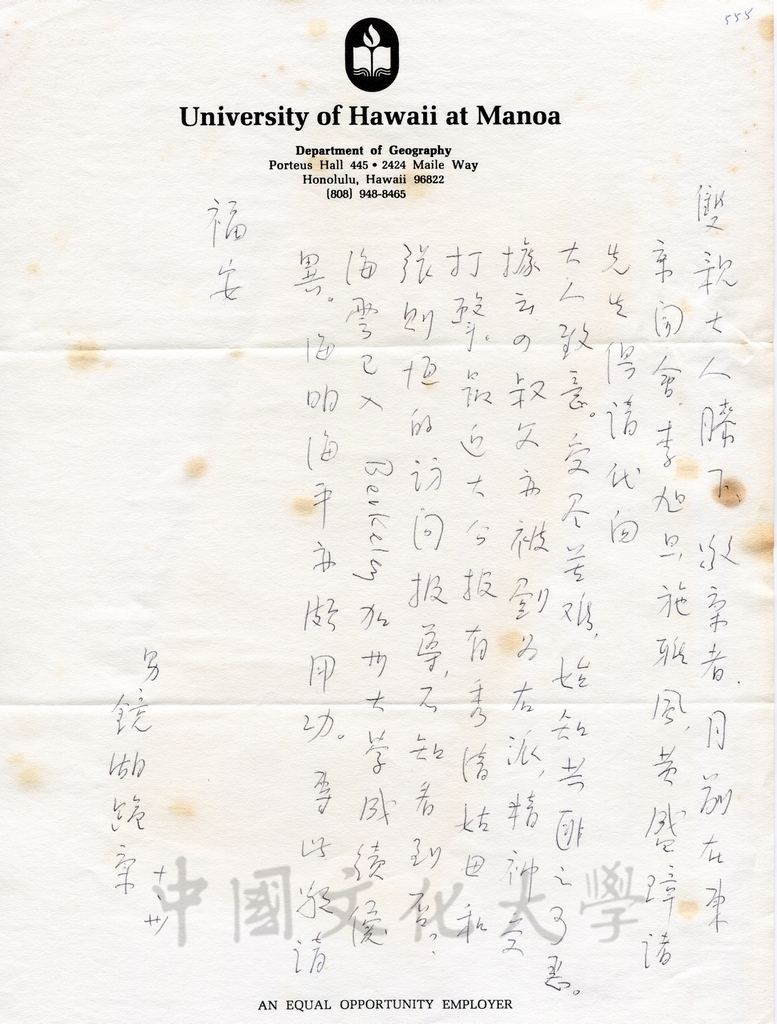 555
University of Hawaii at Manoa
Department of Geography
Porteus Hall 445 • 2424 Maile Way
Honolulu, Hawaii 96822
(808) 948-8465
雙親大人膝下,敬稟者,月前在東
京開會,李旭旦,施雅風,黃盛璋諸
先生得請代向
大人致意。受尽苦难,始知共匪之可惡。
據云四叔父亦被劃为右派,精神受
打擊。最近大公报有秀清姑母和
張则恒的访问报导,不知看到否?
海雲已入Berkeley加州大学成績優
異。海明海平亦頗用功。專此敬請
福安
男
鏡湖跪稟
十、廿
中國文化大學
AN EQUAL OPPORTUNITY EMPLOYER